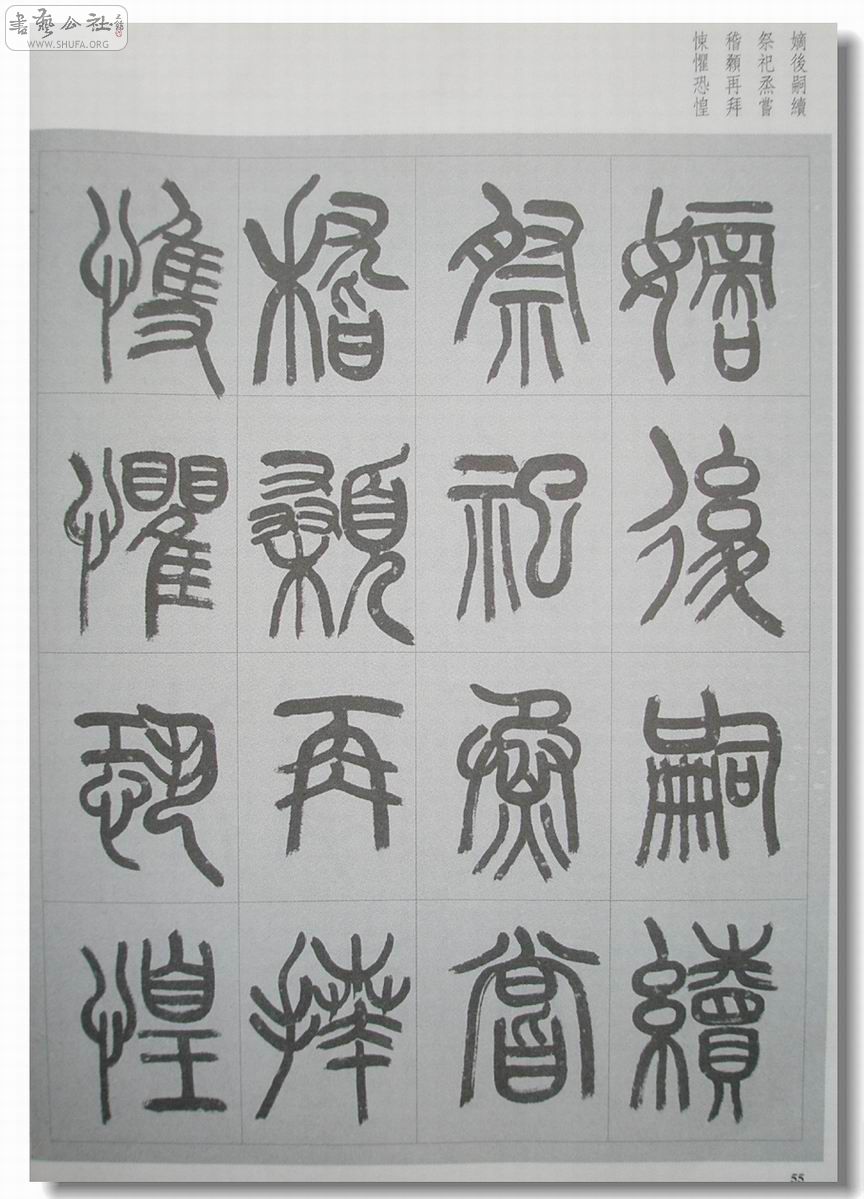 書藝公社
WWW.SHUFA.ORG
嫡後嗣續
祭祀烝嘗
稽顙再拜
悚懼恐惶
嫡後嗣續
祭祀烝嘗
稽顙再拜
悚懼恐惶
55